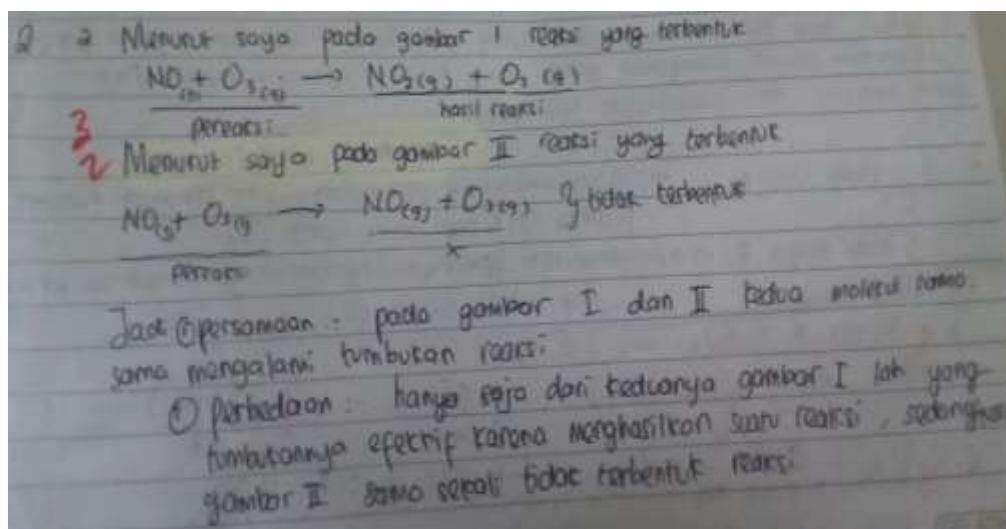 2 a Menurut saya pada gambar 1 reaksi yang terbentuk
NO(g) + O3(g) → NO2(g) + O2(g)
pereaksi hasil reaksi
3
2 Menurut saya pada gambar II reaksi yang terbentuk
NO(g) + O3(g) → NO(g) + O3(g) } tidak terbentuk
pereaksi x
Jadi persamaan : pada gambar I dan II kedua molekul sama
sama mengalami tumbukan reaksi
perbedaan : hanya saja dari keduanya gambar I lah yang
tumbukannya efektif karena menghasilkan suatu reaksi, sedangkan
gambar II sama sekali tidak terbentuk reaksi